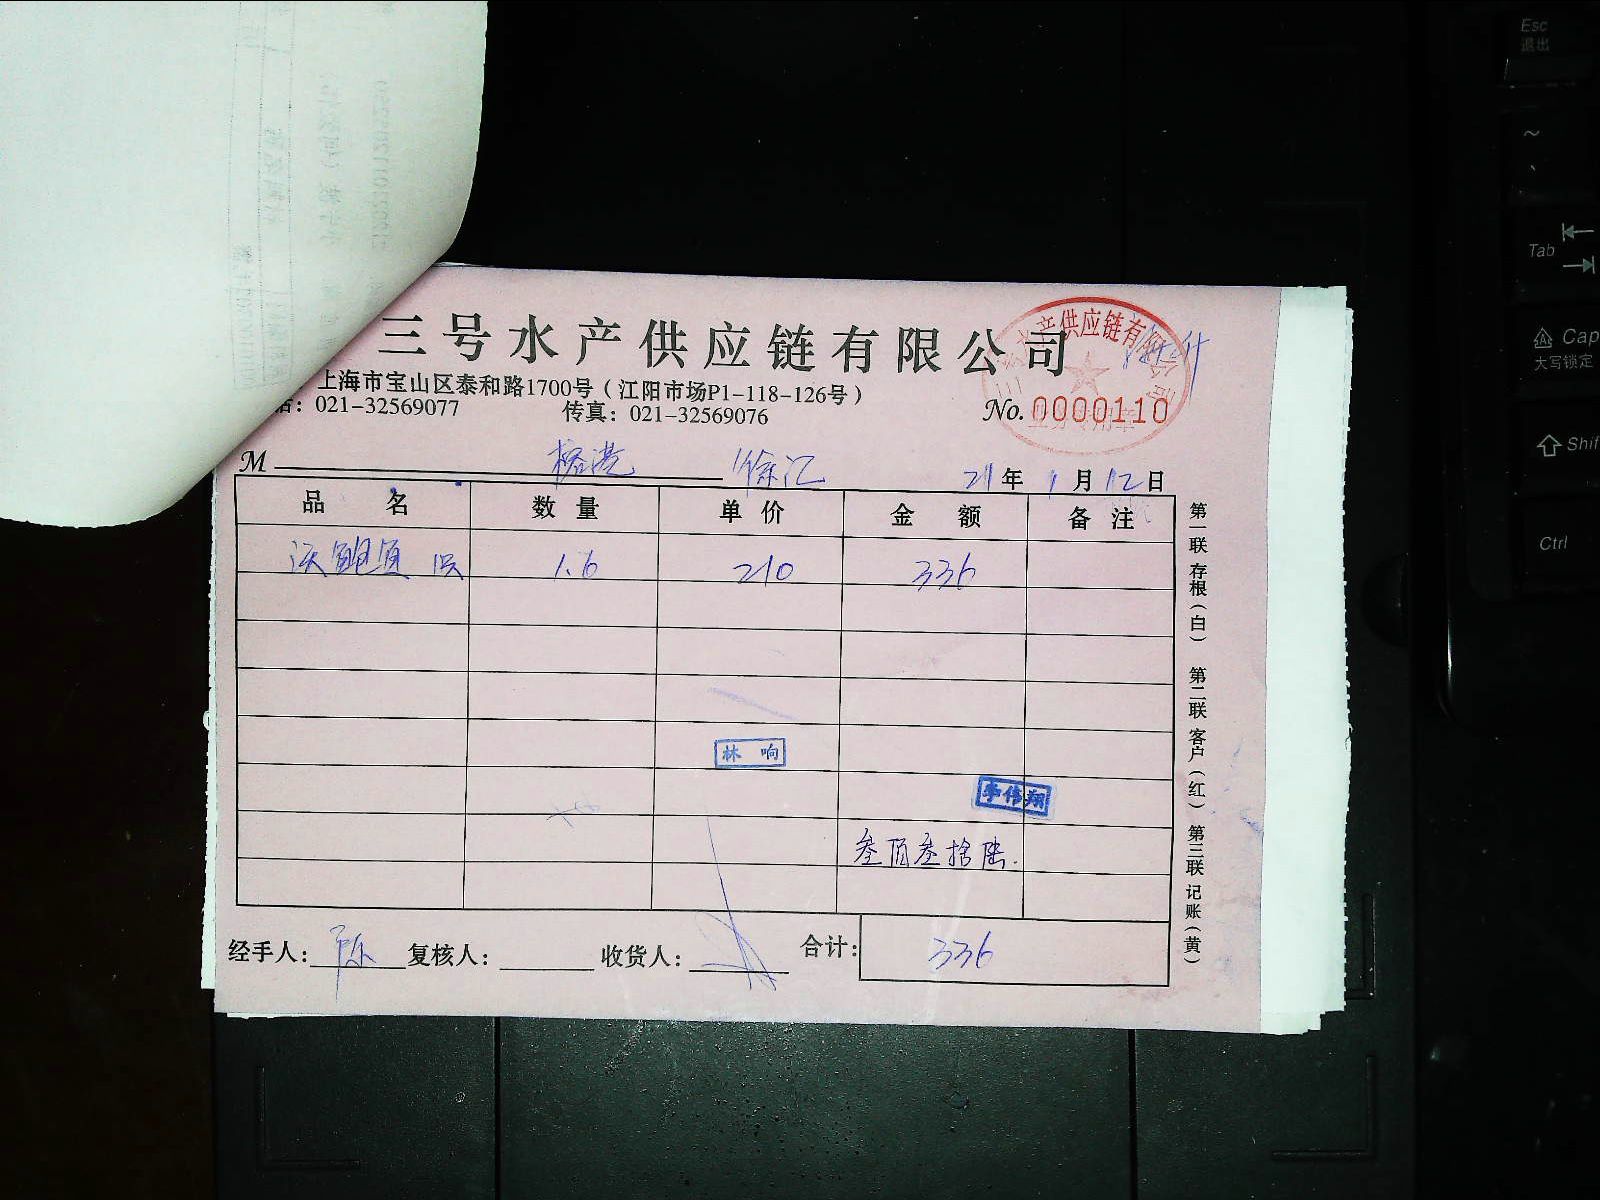 三号水产供应链有限公司
上海市宝山区泰和路1700号（江阳市场P1-118-126号）
话：021-32569077 传真：021-32569076
No. 0000110
产供应链有限公司
业务专用章
M 榕港 徐汇 21年1月12日
品名 数量 单价 金额 备注
1.6 210 336
林响
李伟翔
叁佰叁拾陆.
经手人： 陈 复核人： 收货人： 合计： 336
第一联 存根（白） 第二联 客户（红） 第三联 记账（黄）
Esc
退出
~
Tab
Cap
大写锁定
Shif
Ctrl